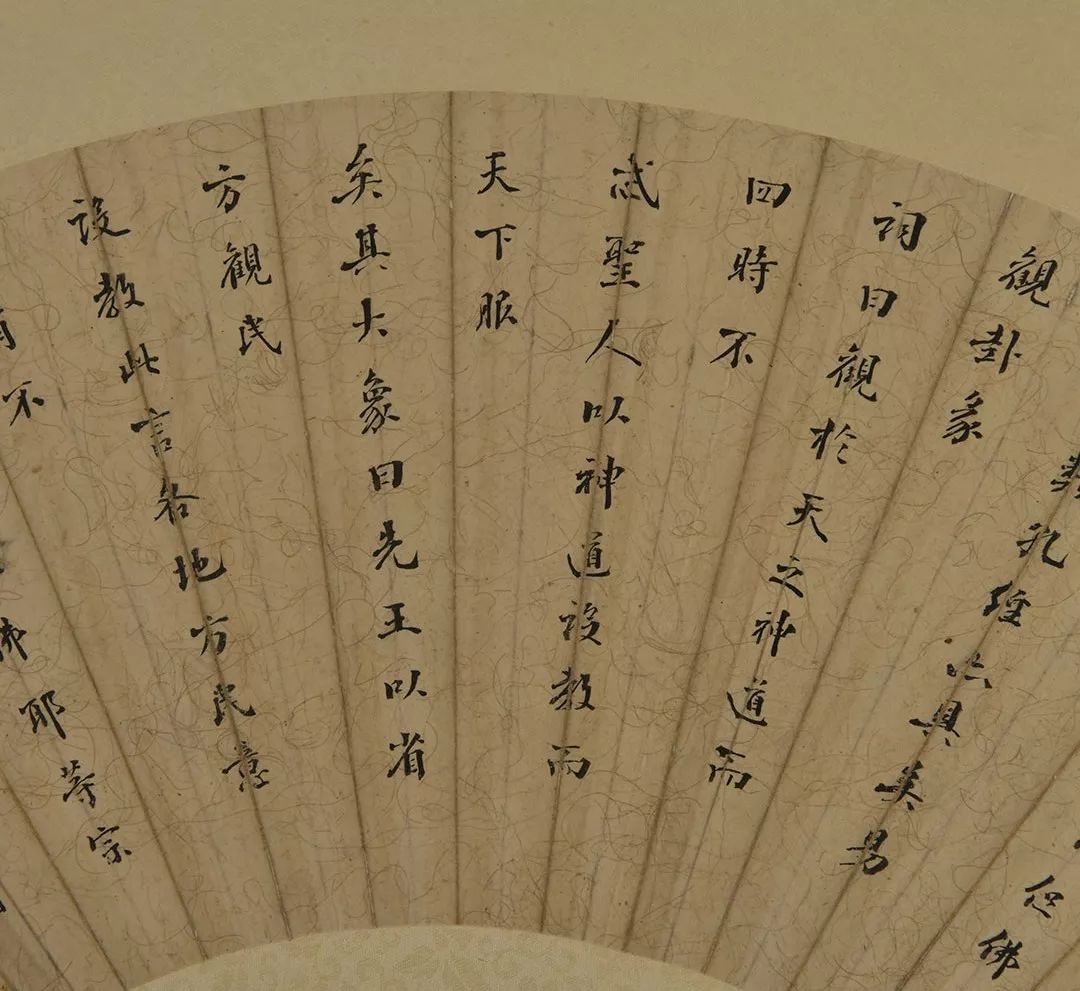 佛
孔經具矣易
觀卦彖
詞曰觀於天之神道而
四時不
忒聖人以神道設教而
天下服
矣其大象曰先王以省
方觀民
設教此言各地方民意
不
佛耶等宗